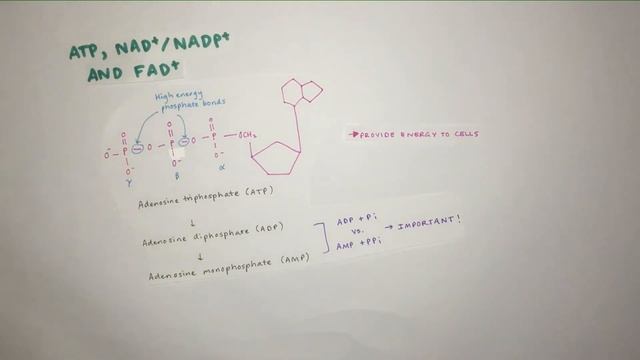 ATP, NAD⁺/NADP⁺
AND FAD⁺
High energy
phosphate bonds
O O O
O⁻ P O P O P OCH₂
O⁻ O⁻ O⁻
γ β α
→ PROVIDE ENERGY TO CELLS
Adenosine triphosphate (ATP)
↓
Adenosine diphosphate (ADP)
↓
Adenosine monophosphate (AMP)
ADP + Pi
vs.
AMP + PPi
→ IMPORTANT!